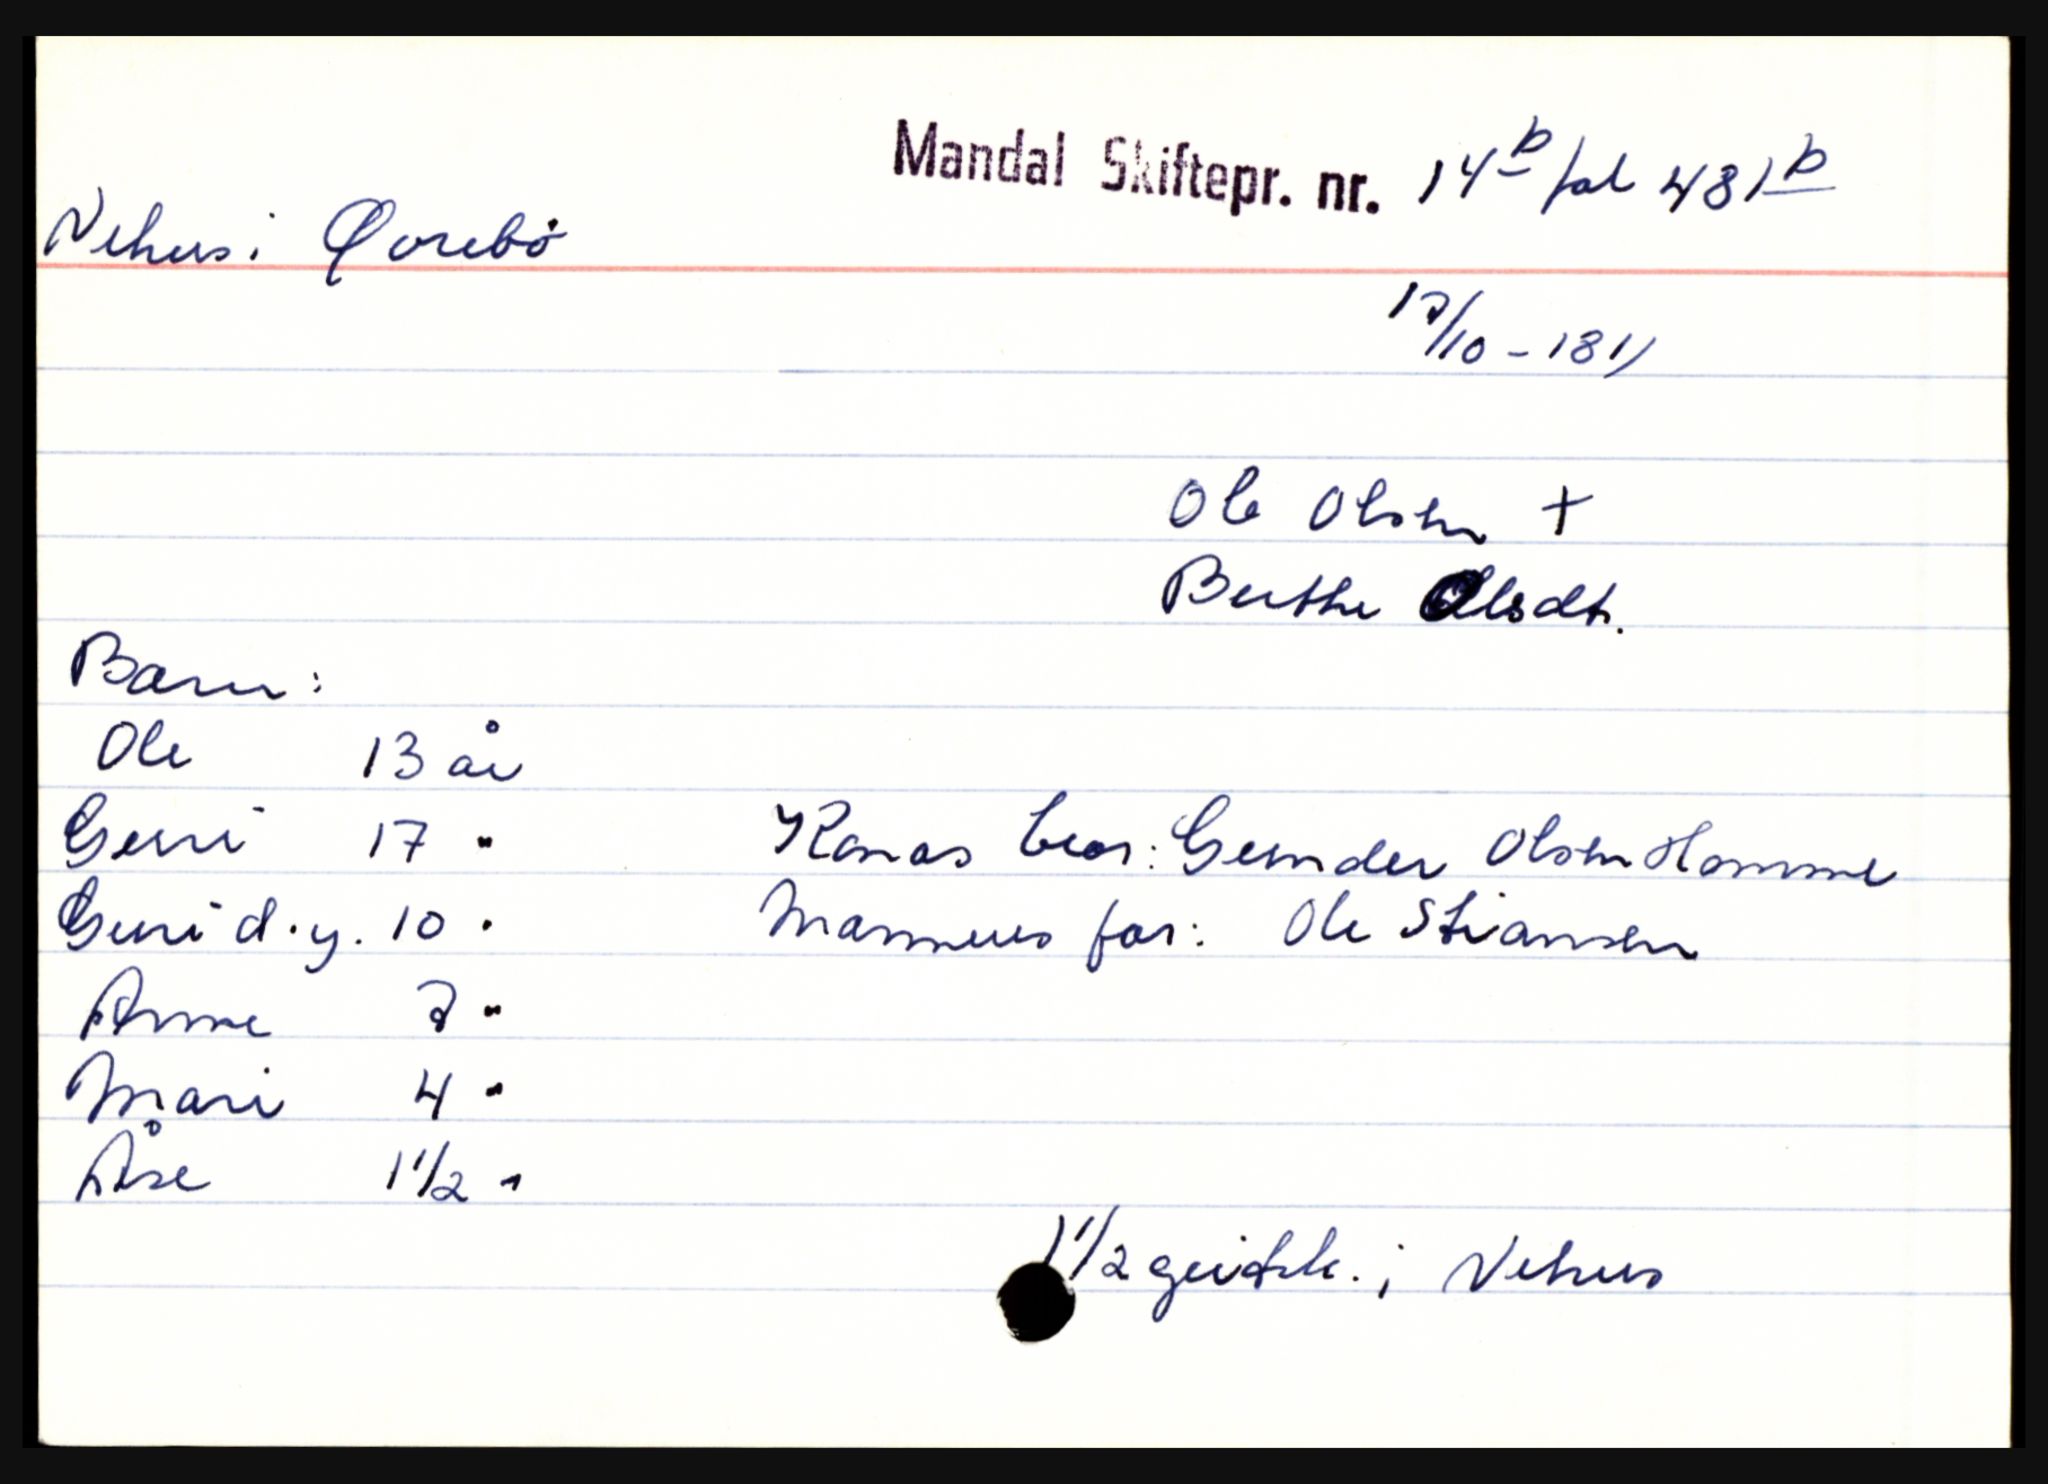 Mandal Skiftepr. nr. 14b fol 481b
Nehus i Øvrebö
17/10 - 1811
Ole Olsen +
Berthe Olsdt.
Barn:
Ole 13 år
Guri 17 "
Konas bror: Gunder Olsen Homme
Guri d.y. 10 "
Mannens far: Ole Stiansen
Anne 7 "
Mari 4 "
Åse 1 1/2 "
1 1/2 geitsk. i Nehus